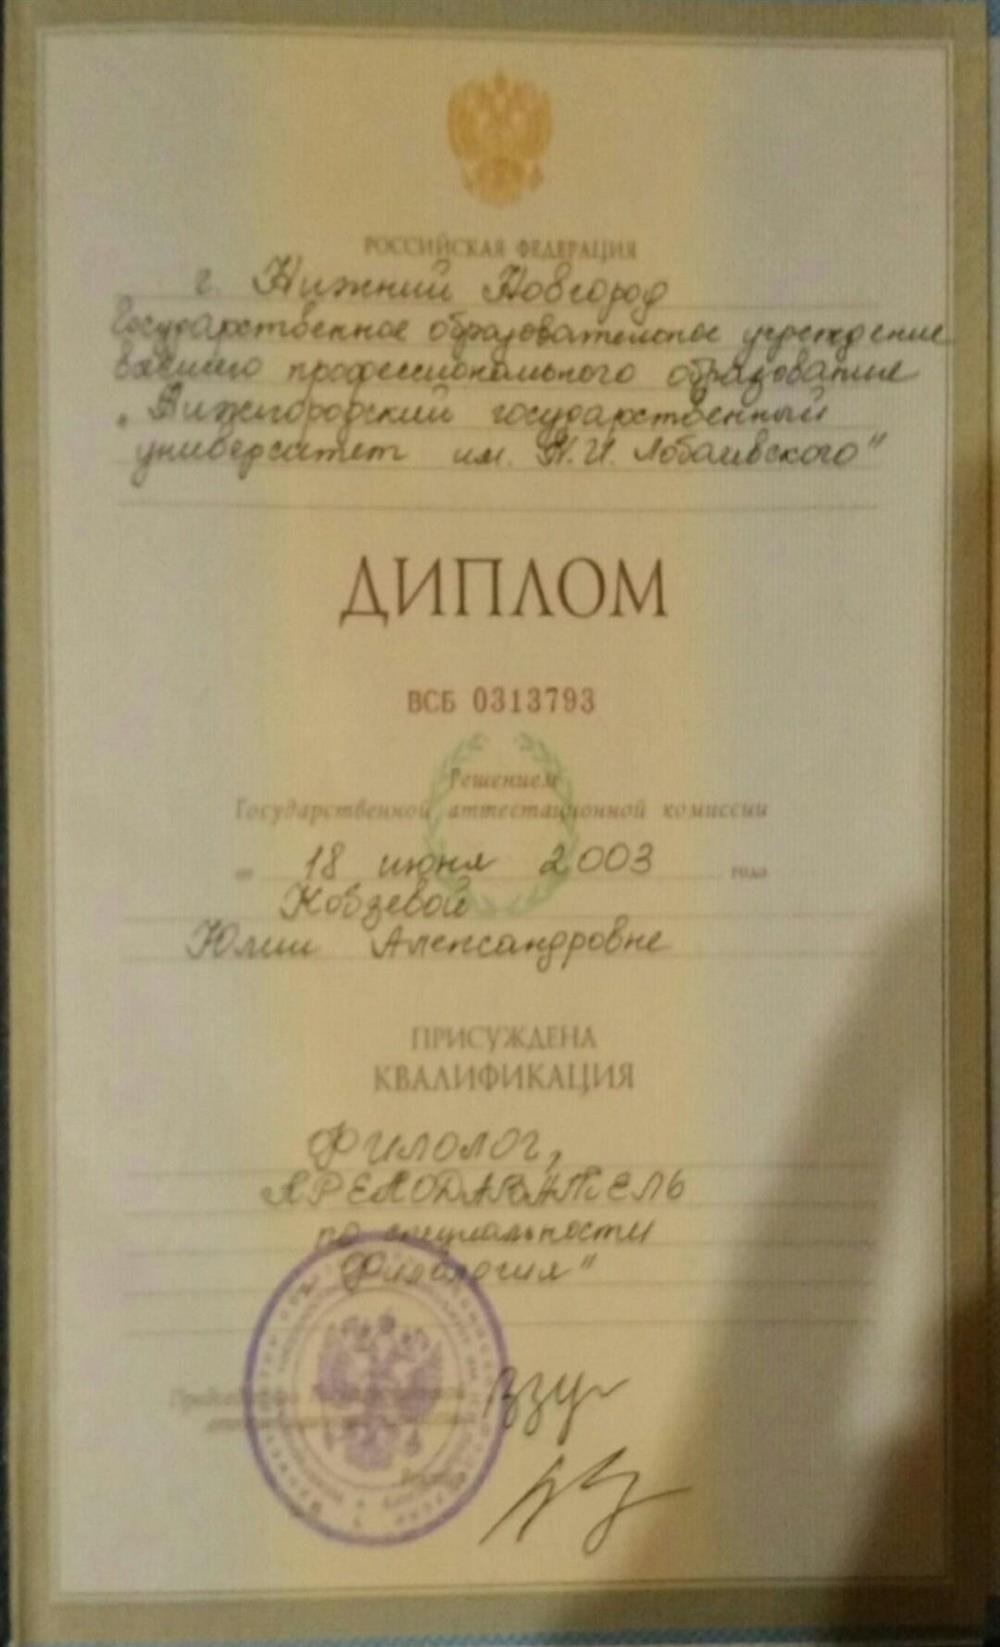 РОССИЙСКАЯ ФЕДЕРАЦИЯ
г. Нижний Новгород
Государственное образовательное учреждение
высшего профессионального образования
„Нижегородский государственный
университет им. Н.И. Лобачевского"
ДИПЛОМ
ВСБ 0313793
Решением
Государственной аттестационной комиссии
от 18 июня 2003 года
Кобзевой
Юлии Александровне
ПРИСУЖДЕНА
КВАЛИФИКАЦИЯ
ФИЛОЛОГ,
ПРЕПОДАВАТЕЛЬ
по специальности
„Филология"
Председатель
Ректор